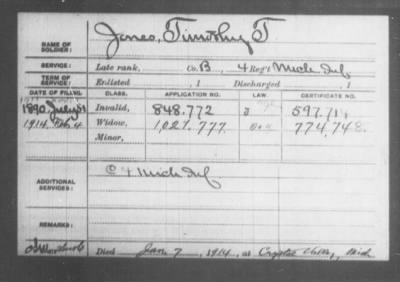 Jones, Timothy T
NAME OF SOLDIER:
SERVICE: Late rank, Co. B, 4 Reg't Mich Inf
TERM OF SERVICE: Enlisted , 1 Discharged , 1
DATE OF FILING. CLASS. APPLICATION NO. LAW. CERTIFICATE NO.
1890 July Invalid, 848.772 597.711
1914, Feb. 4 Widow, 1,021.777 774,748.
Minor,
ADDITIONAL SERVICES: C 4 Mich Inf
REMARKS:
Died Jan 7, 1914, at Crystal Valley, Mich